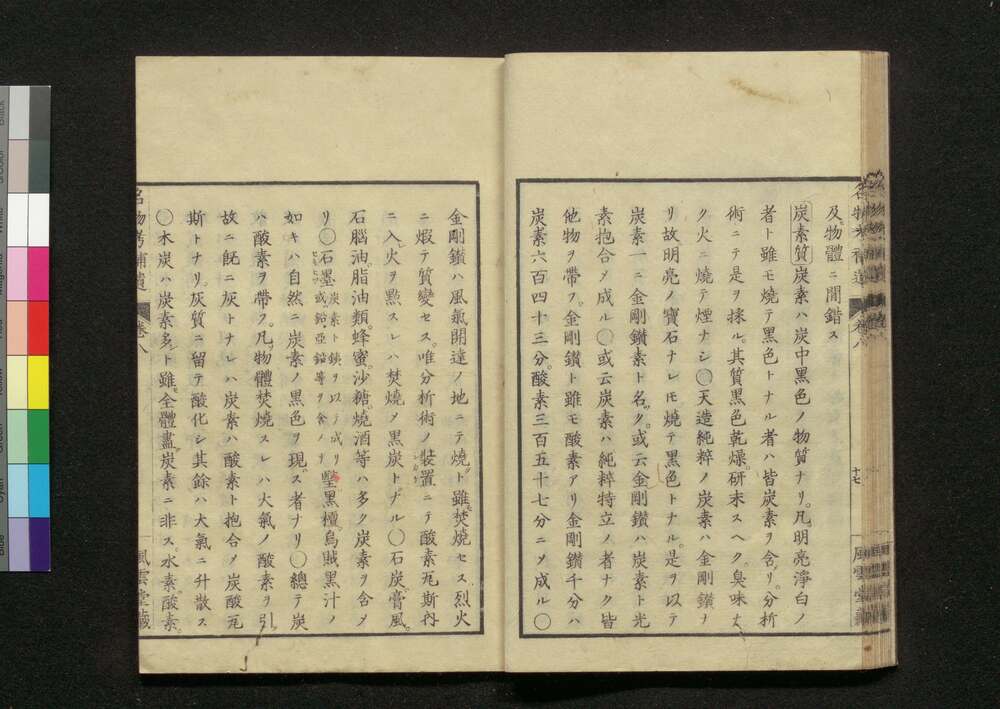 及物體ニ間錯ス
炭素質 炭素ハ炭中黒色ノ物質ナリ。凡明亮淨白ノ
者ト雖モ焼テ黒色トナル者ハ皆炭素ヲ含リ。分析
術ニテ是ヲ採ル。其質黒色乾燥。研末スヘク。臭味ナ
ク火ニ焼テ煙ナシ〇天造純粹ノ炭素ハ金剛鑚ナ
リ故明亮ノ寶石ナレ𪜈焼テ黒色トナル。是ヲ以テ
炭素一ニ金剛鑚素ト名ク。或云金剛鑚ハ炭素ト光
素抱合メ成ル〇或云炭素ハ純粹特立ノ者ナク皆
他物ヲ帶フ。金剛鑚ト雖モ酸素アリ金剛鑚千分ハ
炭素六百四十三分。酸素三百五十七分ニメ成ル〇
金剛鑚ハ風氣開達ノ地ニテ焼ト雖。焚焼セス烈火
ニ煆テ質變セス。唯分析術ノ裝置ニテ酸素瓦斯内
ニ入火ヲ㸃スレハ焚焼メ黒炭トナル〇石炭。膏風。
石腦油。脂油類。蜂蜜。沙糖。焼酒等ハ多ク炭素ヲ含メ
リ〇石墨 炭素ト鐡ヲ以テ成リ或鉛亞鉛等ヲ含メリ 䃜。黒檀。烏賊黒汁ノ
如キハ自然ニ炭素ノ黒色ヲ現ス者ナリ〇總テ炭
ハ酸素ヲ帶フ。凡物體焚焼スレハ大氣ノ酸素ヲ引。
故ニ既ニ灰トナレハ炭素ハ酸素ト抱合メ炭酸瓦
斯トナリ。灰質ニ留テ酸化シ其餘ハ大氣ニ升散ス
〇木炭ハ炭素多ト雖。全體盡炭素ニ非ス。水素。酸素。
名物考補遺 卷八
風雲堂藏
十七